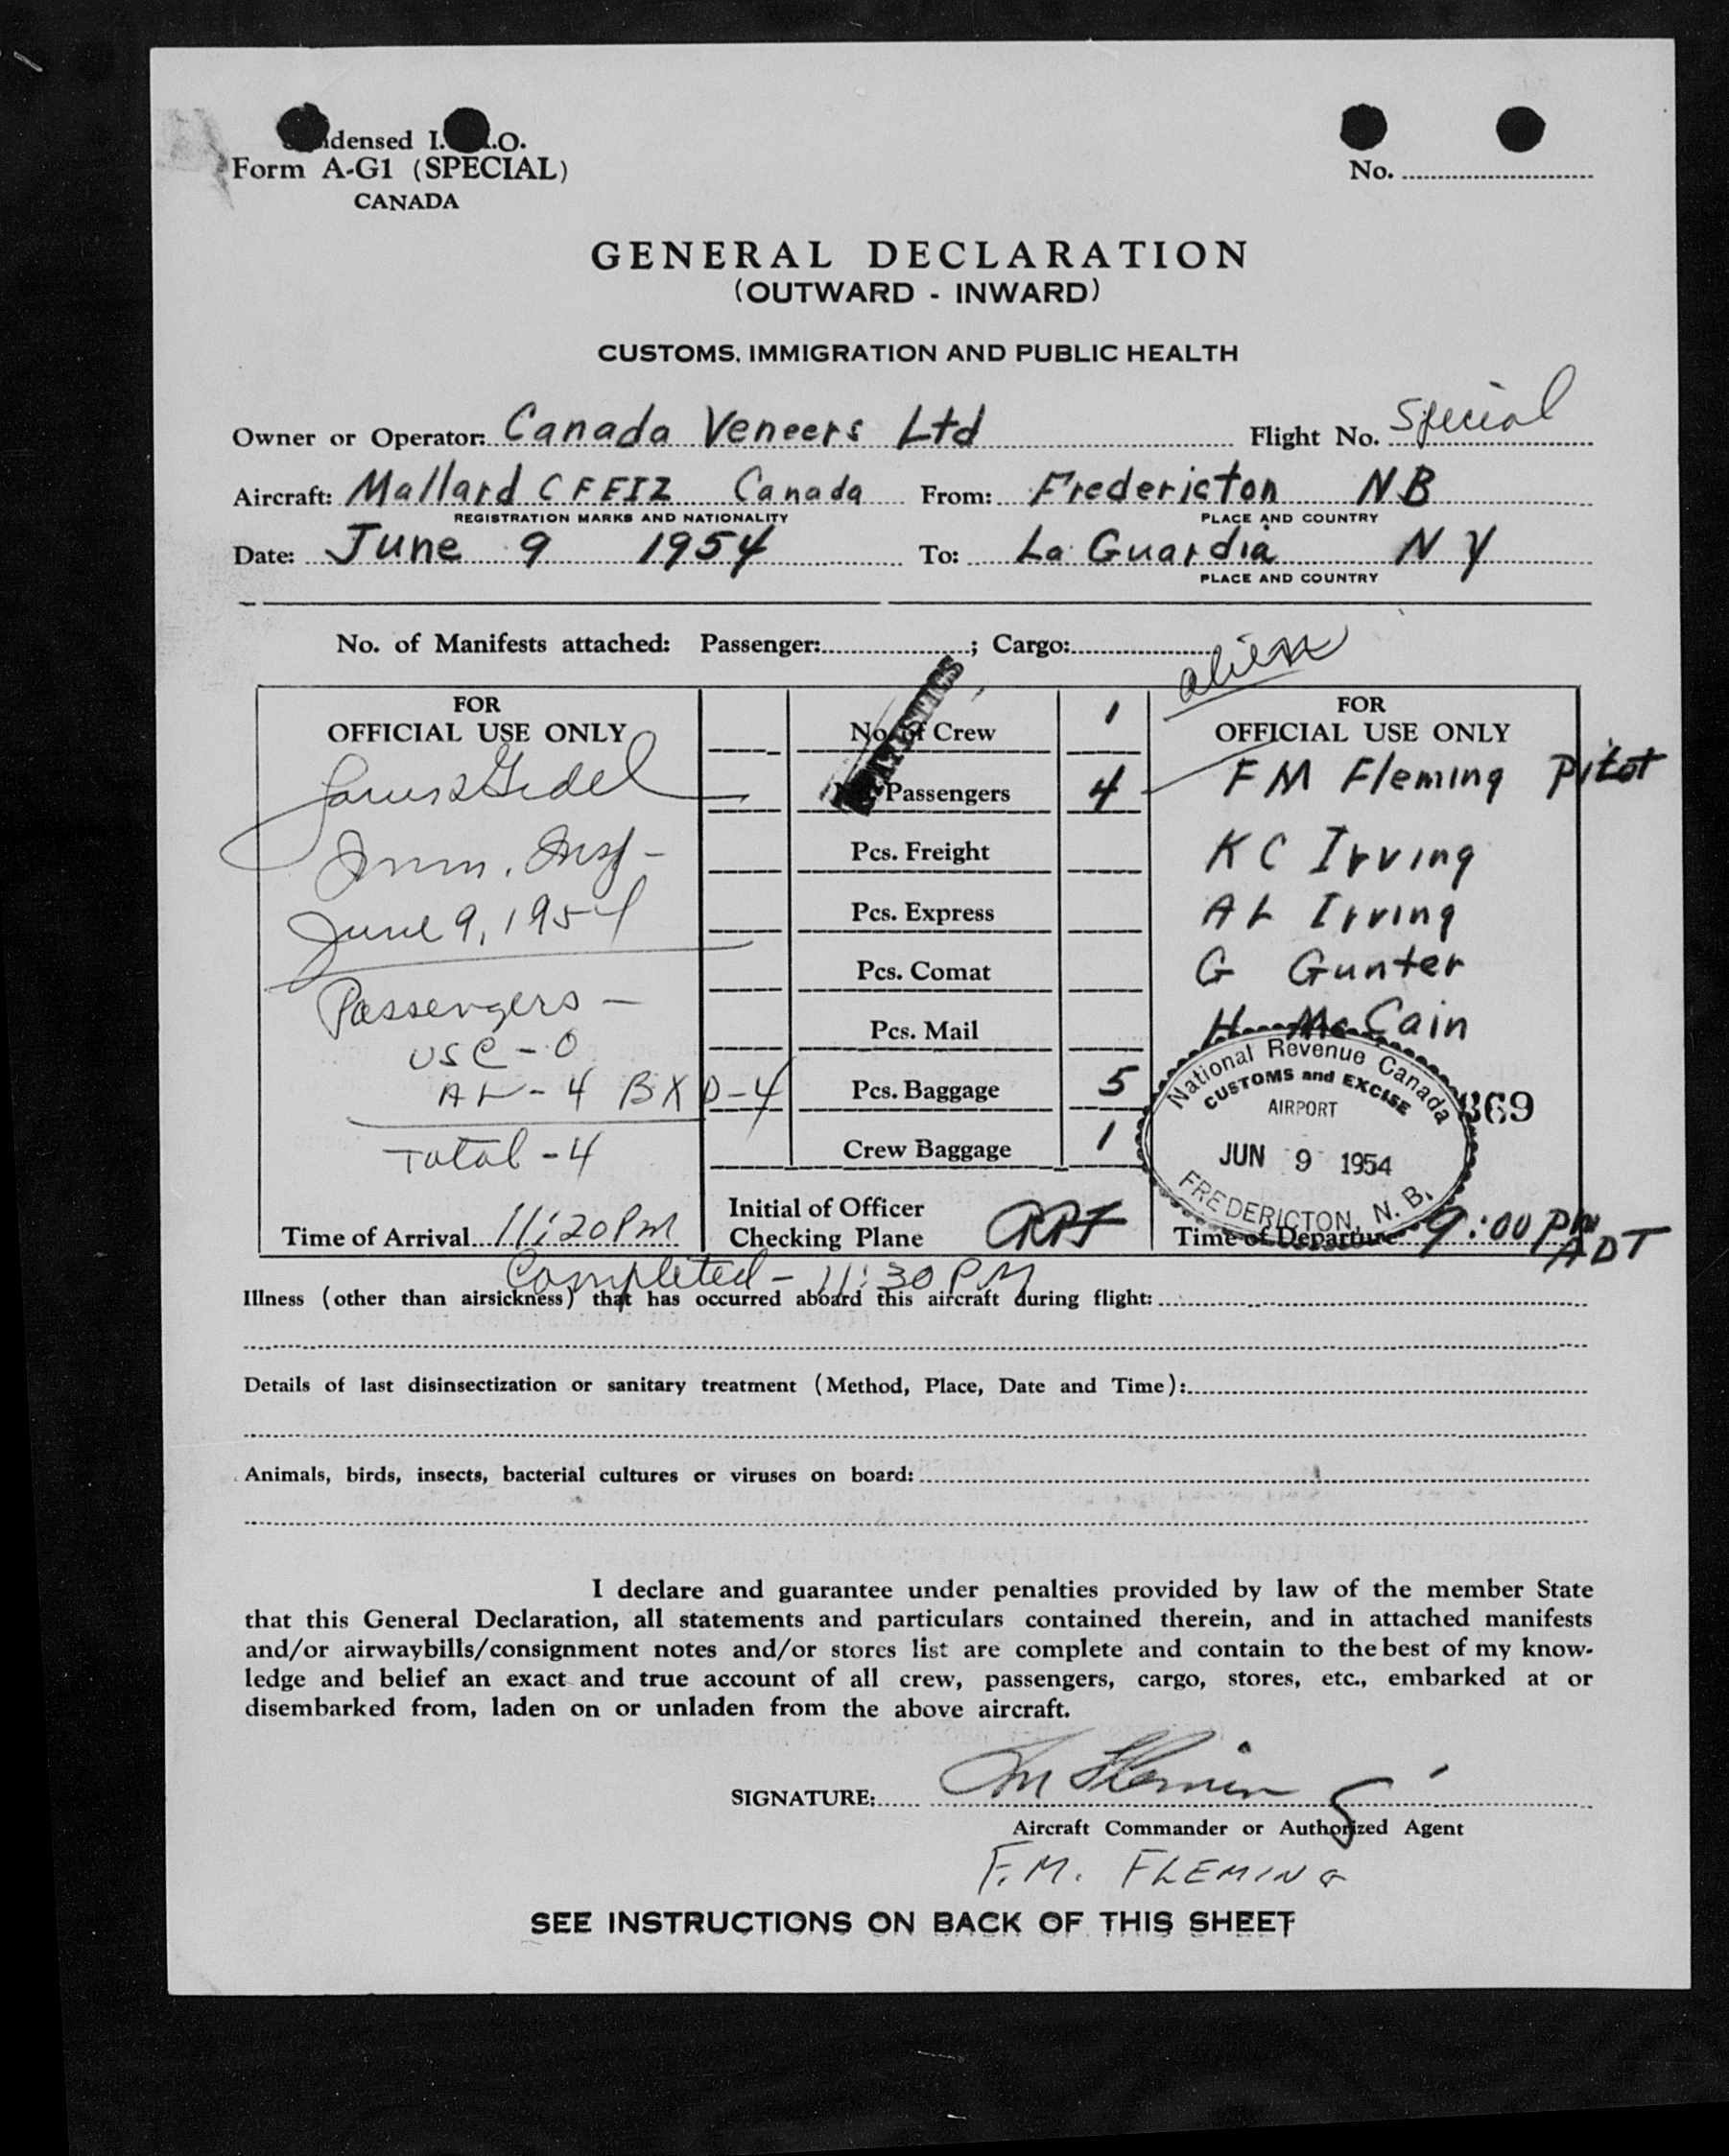 densed I. .O.
Form A-G1 (SPECIAL)
CANADA
No.
GENERAL DECLARATION
(OUTWARD - INWARD)
CUSTOMS, IMMIGRATION AND PUBLIC HEALTH
Owner or Operator: Canada Veneers Ltd Flight No. Special
Aircraft: Mallard CFEIZ Canada From: Fredericton NB
REGISTRATION MARKS AND NATIONALITY PLACE AND COUNTRY
Date: June 9 1954 To: La Guardia N Y
PLACE AND COUNTRY
No. of Manifests attached: Passenger: ; Cargo:
alien
STATISTICS
FOR
OFFICIAL USE ONLY
Imm. Insp-
June 9, 1954
Passengers -
USC - 0
AL - 4 BXD - 4
Total - 4
Time of Arrival 11:20 PM
No. of Crew 1
Passengers 4
Pcs. Freight
Pcs. Express
Pcs. Comat
Pcs. Mail
Pcs. Baggage 5
Crew Baggage 1
Initial of Officer
Checking Plane
FOR
OFFICIAL USE ONLY
F M Fleming Pilot
K C Irving
A L Irving
G Gunter
H McCain
National Revenue Canada
CUSTOMS and EXCISE
AIRPORT
JUN 9 1954
FREDERICTON, N. B.
369
Time of Departure 9:00 PM
ADT
Completed - 11:30 PM
Illness (other than airsickness) that has occurred aboard this aircraft during flight:
Details of last disinsectization or sanitary treatment (Method, Place, Date and Time):
Animals, birds, insects, bacterial cultures or viruses on board:
I declare and guarantee under penalties provided by law of the member State
that this General Declaration, all statements and particulars contained therein, and in attached manifests
and/or airwaybills/consignment notes and/or stores list are complete and contain to the best of my know-
ledge and belief an exact and true account of all crew, passengers, cargo, stores, etc., embarked at or
disembarked from, laden on or unladen from the above aircraft.
SIGNATURE: F M Fleming
Aircraft Commander or Authorized Agent
F. M. FLEMING
SEE INSTRUCTIONS ON BACK OF THIS SHEET